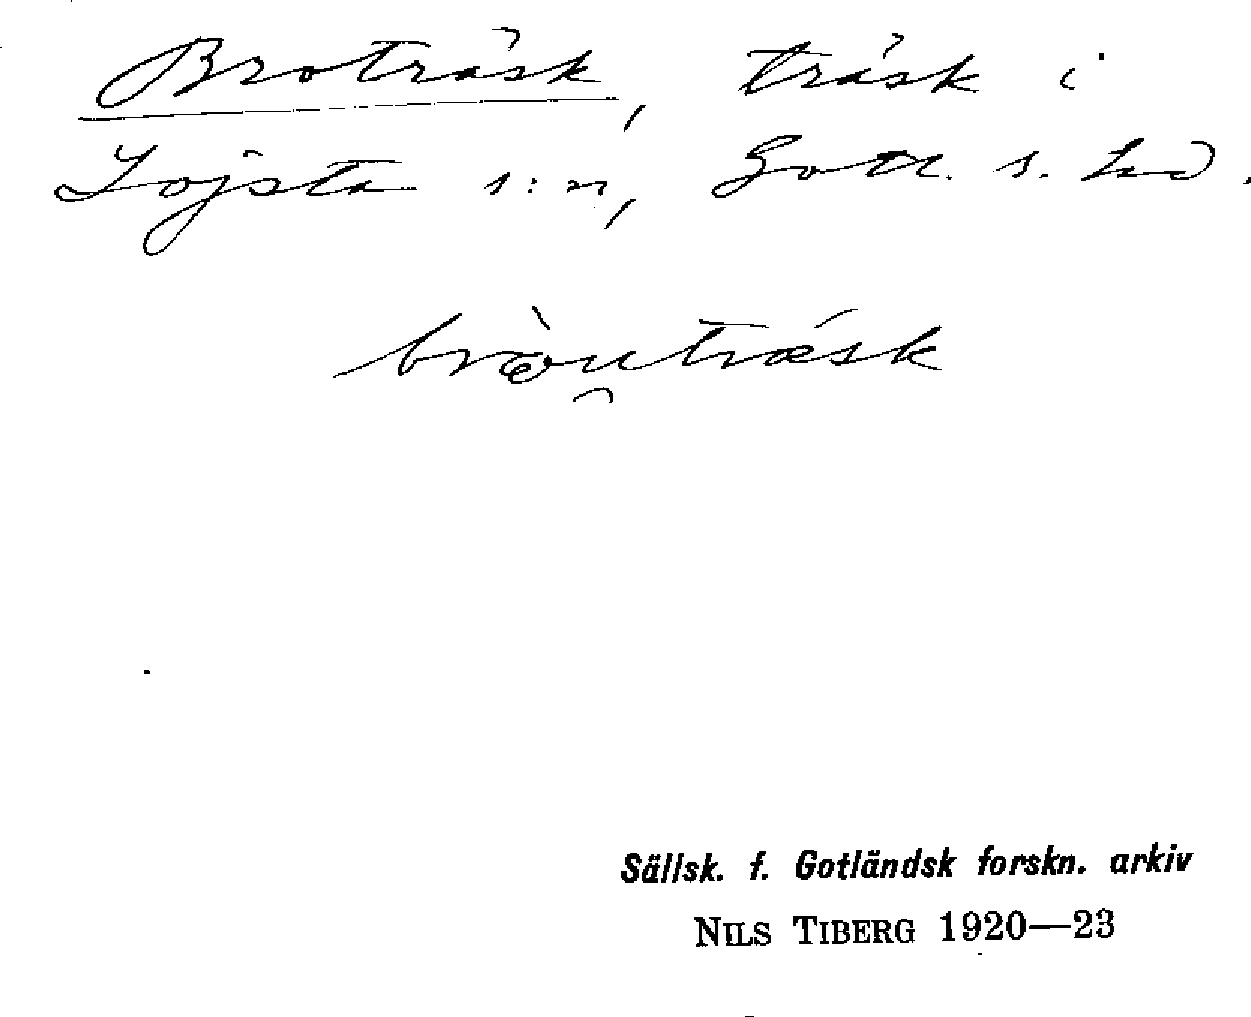 Broträsk, träsk i
Lojsta s:n, Gotl. s. hd.
bròu̯trǽsk
Sällsk. f. Gotländsk forskn. arkiv
NILS TIBERG 1920—23